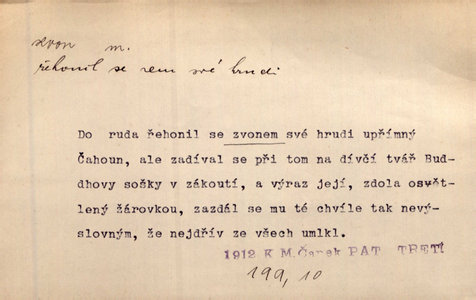 zvon m.
řehonil se zem své hrudi
Do ruda řehonil se zvonem své hrudi upřímný
Čahoun, ale zadíval se při tom na dívčí tvář Bud-
dhovy sošky v zákoutí, a výraz její, zdola osvět-
lený žárovkou, zazdál se mu té chvíle tak nevý-
slovným, že nejdřív ze všech umlkl.
1912 K M. Čapek PAT TŘETÍ
199, 10